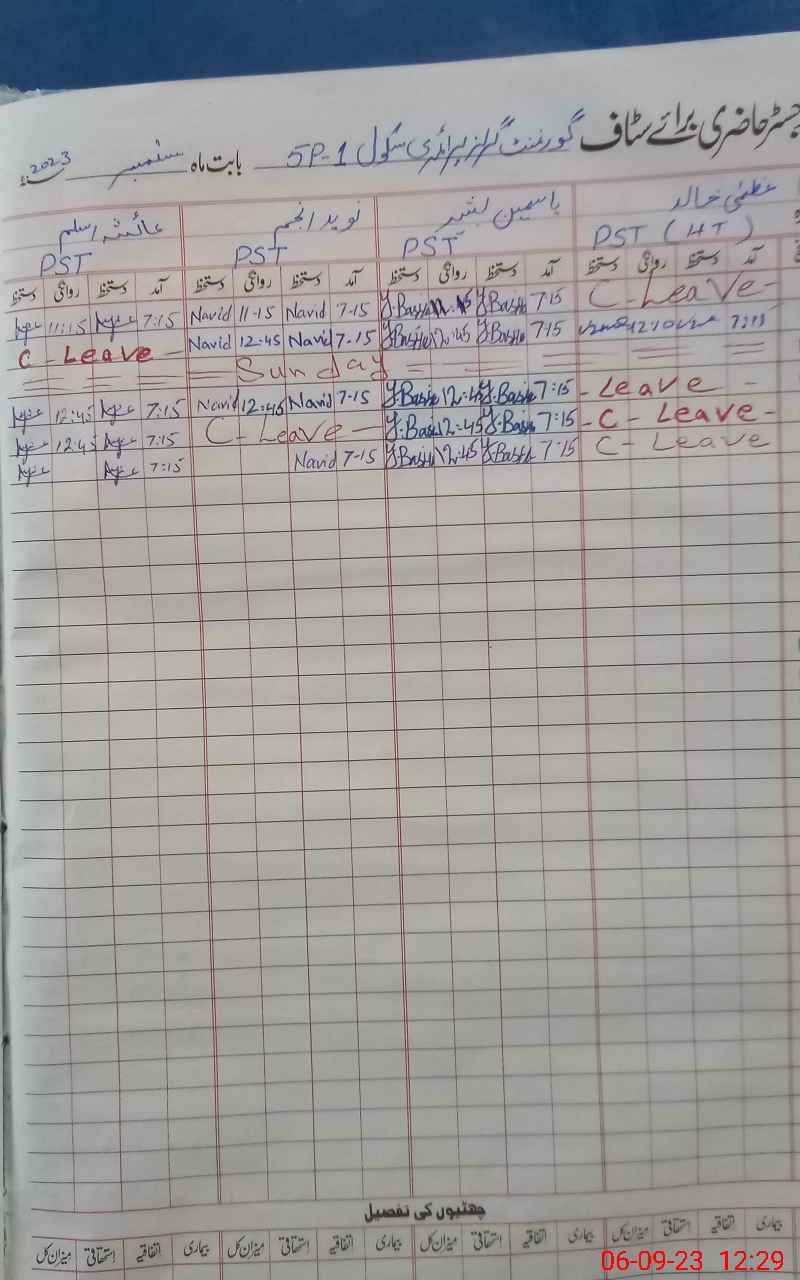 رجسٹر حاضری برائے سٹاف گورنمنٹ گرلز پرائمری سکول 5P-1 بابت ماہ ستمبر 2023
عظمٰی خالد یاسمین بشیر نوید انجم عائشہ اسلم
PST (HT) PST PST PST
آمد دستخط روانگی دستخط آمد دستخط روانگی دستخط آمد دستخط روانگی دستخط آمد دستخط روانگی دستخط
11:15 7:15 Navid 11-15 Navid 7-15 Y.Bashir Y.Bashir 7:15 C-Leave-
C - Leave - Navid 12:45 Navid 7-15 Y.Bashir 12:45 Y.Bashir 7:15 7:15
Sunday
12:45 7:15 Navid 12:45 Navid 7-15 Y.Bashir 12:45 Y.Bashir 7:15 - Leave -
12:45 7:15 C - Leave - Y.Bashir 12:45 Y.Bashir 7:15 - C - Leave -
7:15 Navid 7-15 Y.Bashir 12:45 Y.Bashir 7:15 C - Leave
چھٹیوں کی تفصیل
بیماری اتفاقیہ استحقاقی میزان کل بیماری اتفاقیہ استحقاقی میزان کل بیماری اتفاقیہ استحقاقی میزان کل بیماری اتفاقیہ استحقاقی میزان کل
06-09-23 12:29